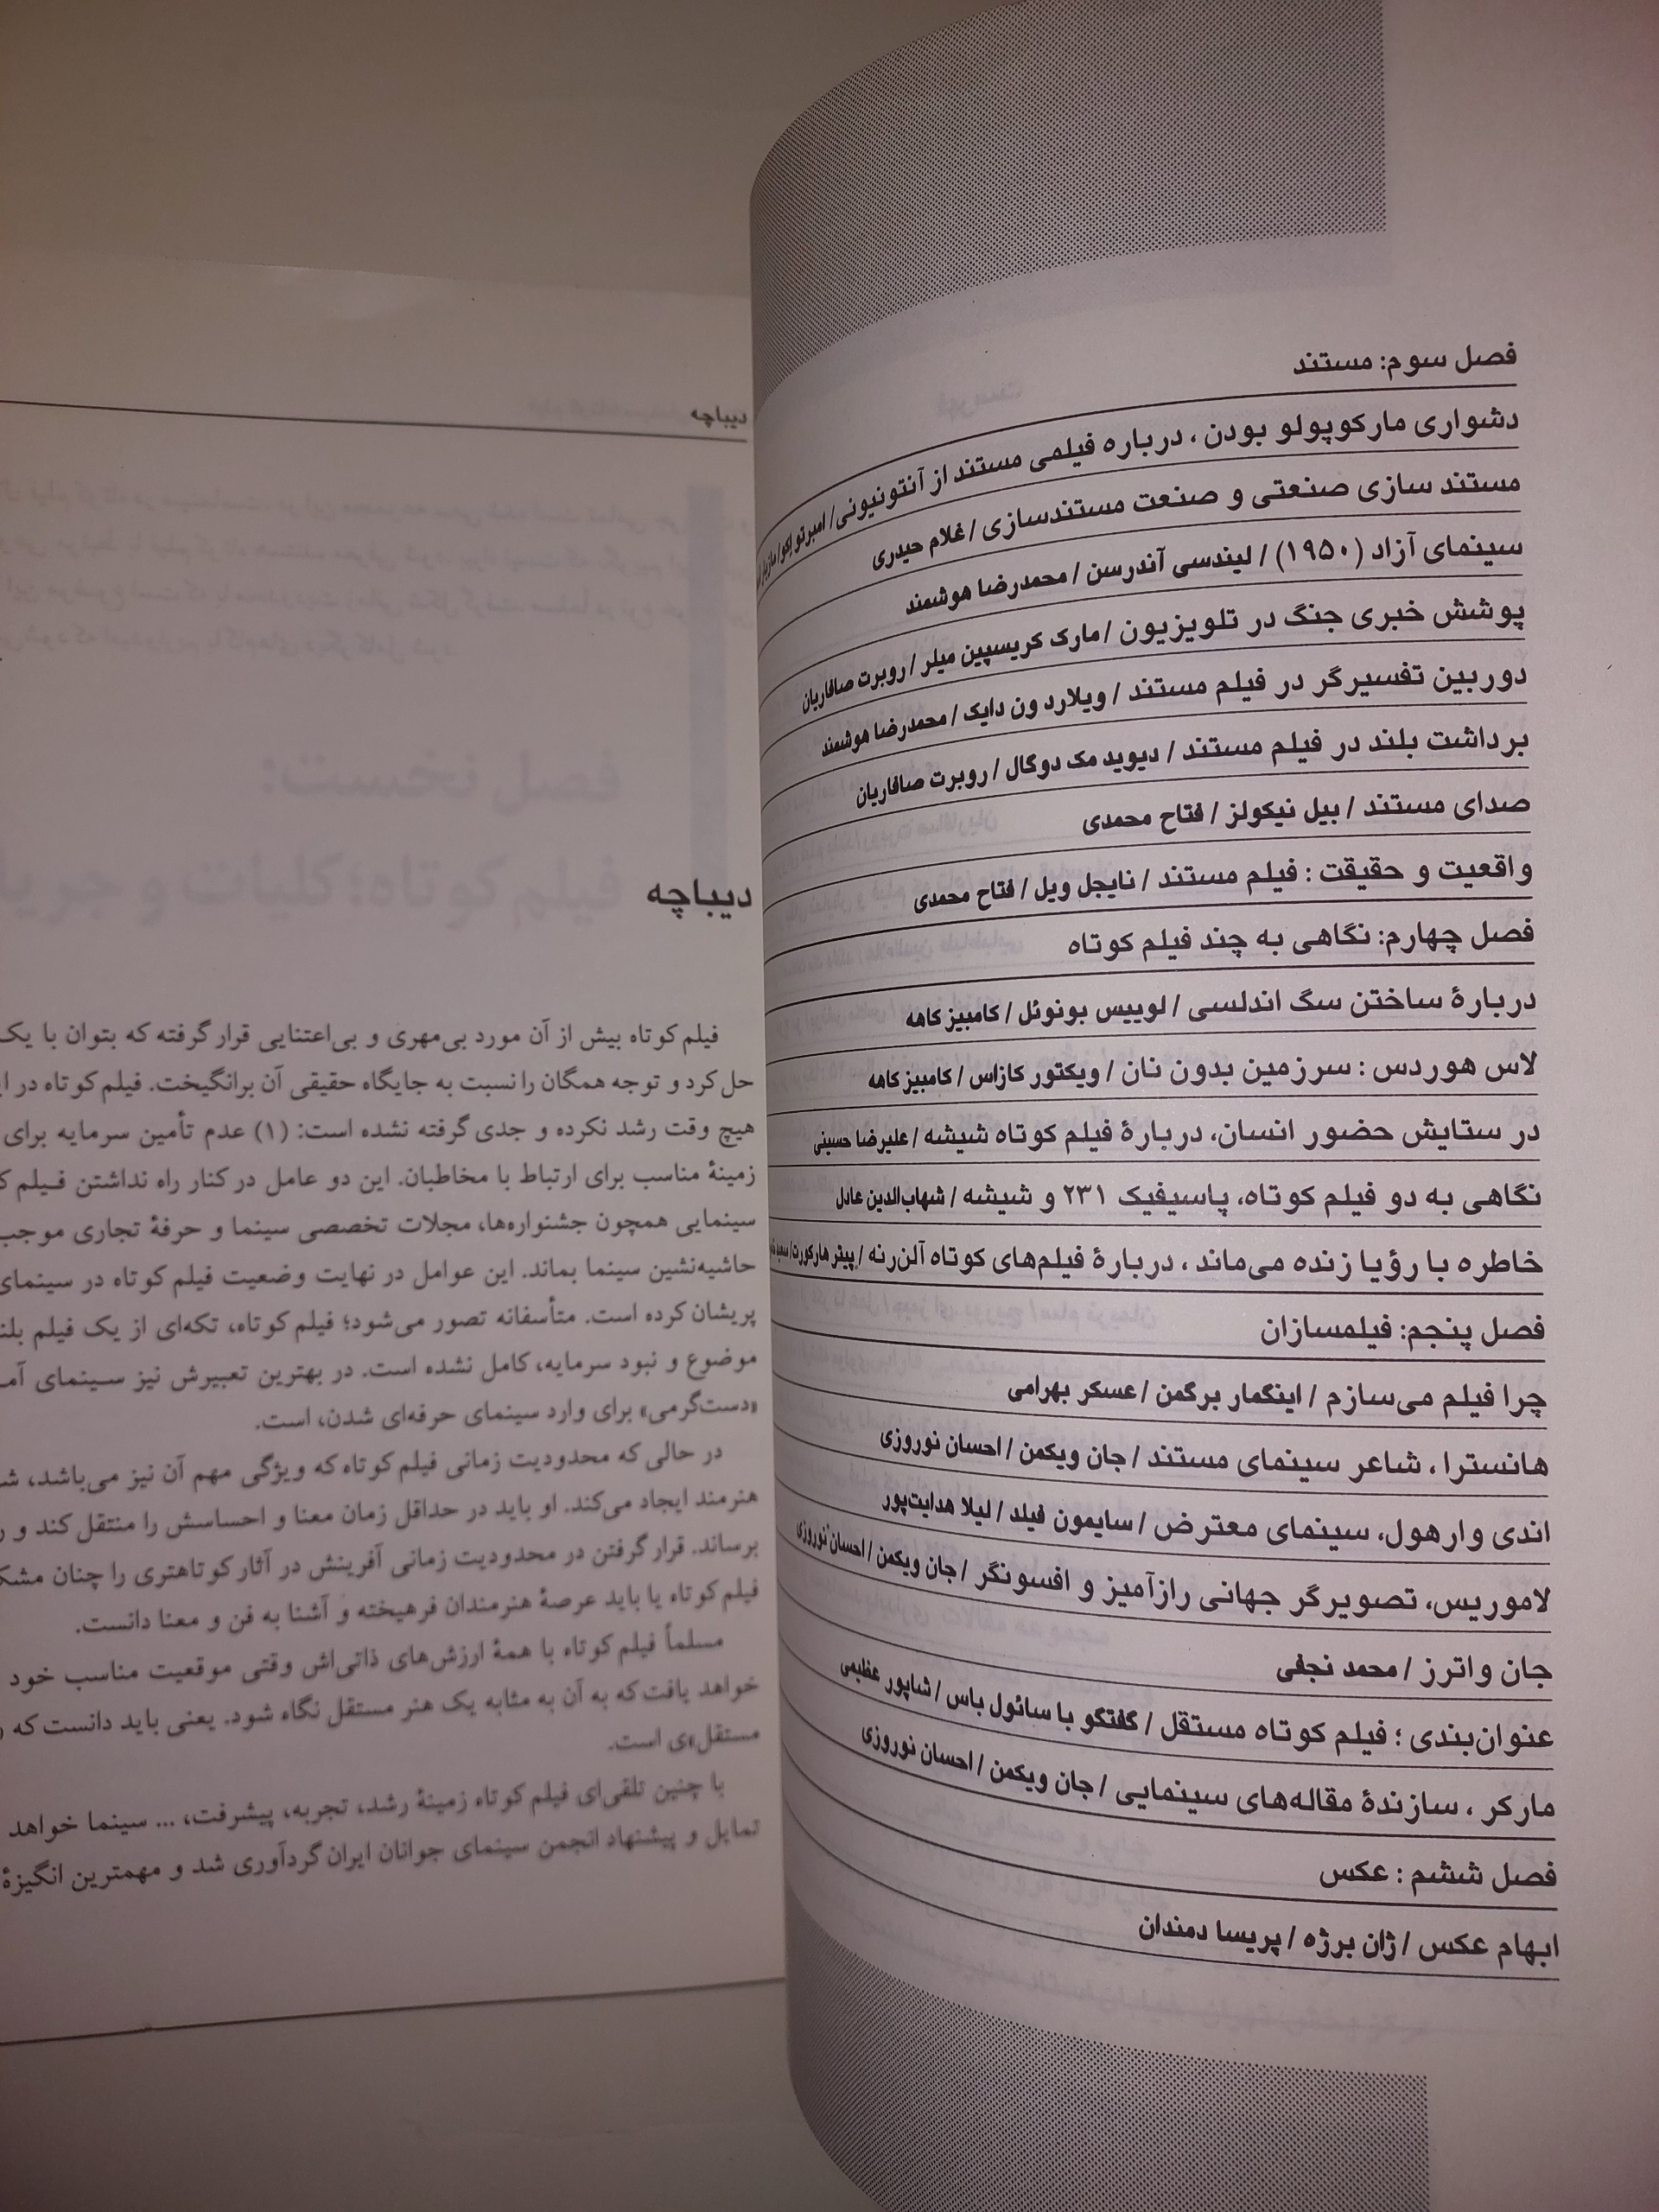 فصل سوم: مستند
دشواری مارکوپولو بودن، درباره فیلمی مستند از آنتونیونی/ امبرتو اکو/
مستند سازی صنعتی و صنعت مستندسازی / غلام حیدری
سینمای آزاد (۱۹۵۰) / لیندسی آندرسن / محمدرضا هوشمند
پوشش خبری جنگ در تلویزیون / مارک کریسپین میلر / روبرت صافاریان
دوربین تفسیرگر در فیلم مستند / ویلارد ون دایک / محمدرضا هوشمند
برداشت بلند در فیلم مستند / دیوید مک دوگال / روبرت صافاریان
صدای مستند / بیل نیکولز / فتاح محمدی
واقعیت و حقیقت : فیلم مستند / نایجل ویل / فتاح محمدی
فصل چهارم: نگاهی به چند فیلم کوتاه
دربارهٔ ساختن سگ اندلسی / لوییس بونوئل / کامبیز کاهه
لاس هوردس : سرزمین بدون نان / ویکتور کازاس / کامبیز کاهه
در ستایش حضور انسان، دربارهٔ فیلم کوتاه شیشه / علیرضا حسینی
نگاهی به دو فیلم کوتاه، پاسیفیک ۲۳۱ و شیشه / شهاب‌الدین عادل
خاطره با رؤیا زنده می‌ماند ، دربارهٔ فیلم‌های کوتاه آلن‌رنه / پیتر هارکورت/ سعید
فصل پنجم: فیلمسازان
چرا فیلم می‌سازم / اینگمار برگمن / عسکر بهرامی
هانسترا ، شاعر سینمای مستند / جان ویکمن / احسان نوروزی
اندی وارهول، سینمای معترض / سایمون فیلد / لیلا هدایت‌پور
لاموریس، تصویرگر جهانی رازآمیز و افسونگر / جان ویکمن / احسان نوروزی
جان واترز / محمد نجفی
عنوان‌بندی ؛ فیلم کوتاه مستقل / گفتگو با سائول باس / شاپور عظیمی
مارکر ، سازندهٔ مقاله‌های سینمایی / جان ویکمن / احسان نوروزی
فصل ششم : عکس
ابهام عکس / ژان برژه / پریسا دمندان
دیباچه
دیباچه
فیلم کوتاه بیش از آن مورد بی‌مهری و بی‌اعتنایی قرار گرفته که بتوان با یک
حل کرد و توجه همگان را نسبت به جایگاه حقیقی آن برانگیخت. فیلم کوتاه در
هیچ وقت رشد نکرده و جدی گرفته نشده است: (۱) عدم تأمین سرمایه برای
زمینهٔ مناسب برای ارتباط با مخاطبان. این دو عامل در کنار راه نداشتن فیلم
سینمایی همچون جشنواره‌ها، مجلات تخصصی سینما و حرفهٔ تجاری موجب
حاشیه‌نشین سینما بماند. این عوامل در نهایت وضعیت فیلم کوتاه در سینمای
پریشان کرده است. متأسفانه تصور می‌شود؛ فیلم کوتاه، تکه‌ای از یک فیلم
موضوع و نبود سرمایه، کامل نشده است. در بهترین تعبیرش نیز سینمای
«دست‌گرمی» برای وارد سینمای حرفه‌ای شدن، است.
در حالی که محدودیت زمانی فیلم کوتاه که ویژگی مهم آن نیز می‌باشد،
هنرمند ایجاد می‌کند. او باید در حداقل زمان معنا و احساسش را منتقل کند و
برساند. قرار گرفتن در محدودیت زمانی آفرینش در آثار کوتاهتری را چنان
فیلم کوتاه یا باید عرصهٔ هنرمندان فرهیخته و آشنا به فن و معنا دانست.
مسلماً فیلم کوتاه با همهٔ ارزش‌های ذاتی‌اش وقتی موقعیت مناسب خود
خواهد یافت که به آن به مثابه یک هنر مستقل نگاه شود. یعنی باید دانست که
مستقل»ی است.
با چنین تلقی‌ای فیلم کوتاه زمینهٔ رشد، تجربه، پیشرفت، ... سینما خواهد
تمایل و پیشنهاد انجمن سینمای جوانان ایران گردآوری شد و مهمترین انگیزهٔ